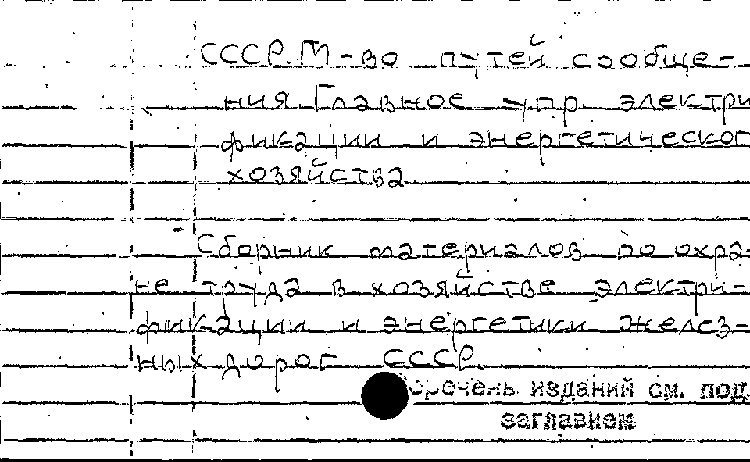 СССР. М-во путей сообще-
ния. Главное упр. электри
фикации и энергетическог
хозяйства
Сборник материалов по охра-
не труда в хозяйстве электри-
фикации и энергетики желез-
ных дорог СССР.
перечень изданий см. под
заглавием